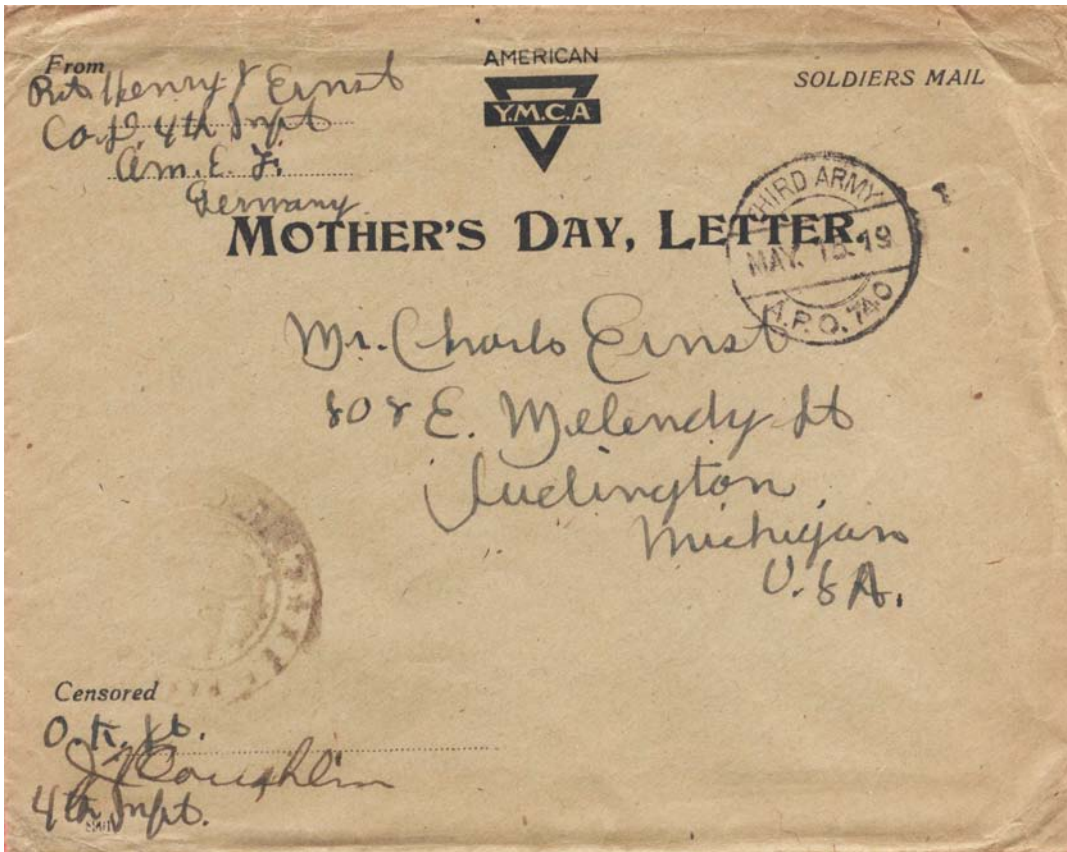 From
Pvt. Henry J Ernst
Co. D. 4th Inft
Am. E. F.
Germany
AMERICAN
Y.M.C.A
SOLDIERS MAIL
MOTHER'S DAY, LETTER.
THIRD ARMY
MAY. 19
A.P.O. 740
Mr. Charls Ernst
808 E. Melendy St
Ludington,
Michigan
U.S.A.
Censored
O.K.
Coughlin
4th Inft.